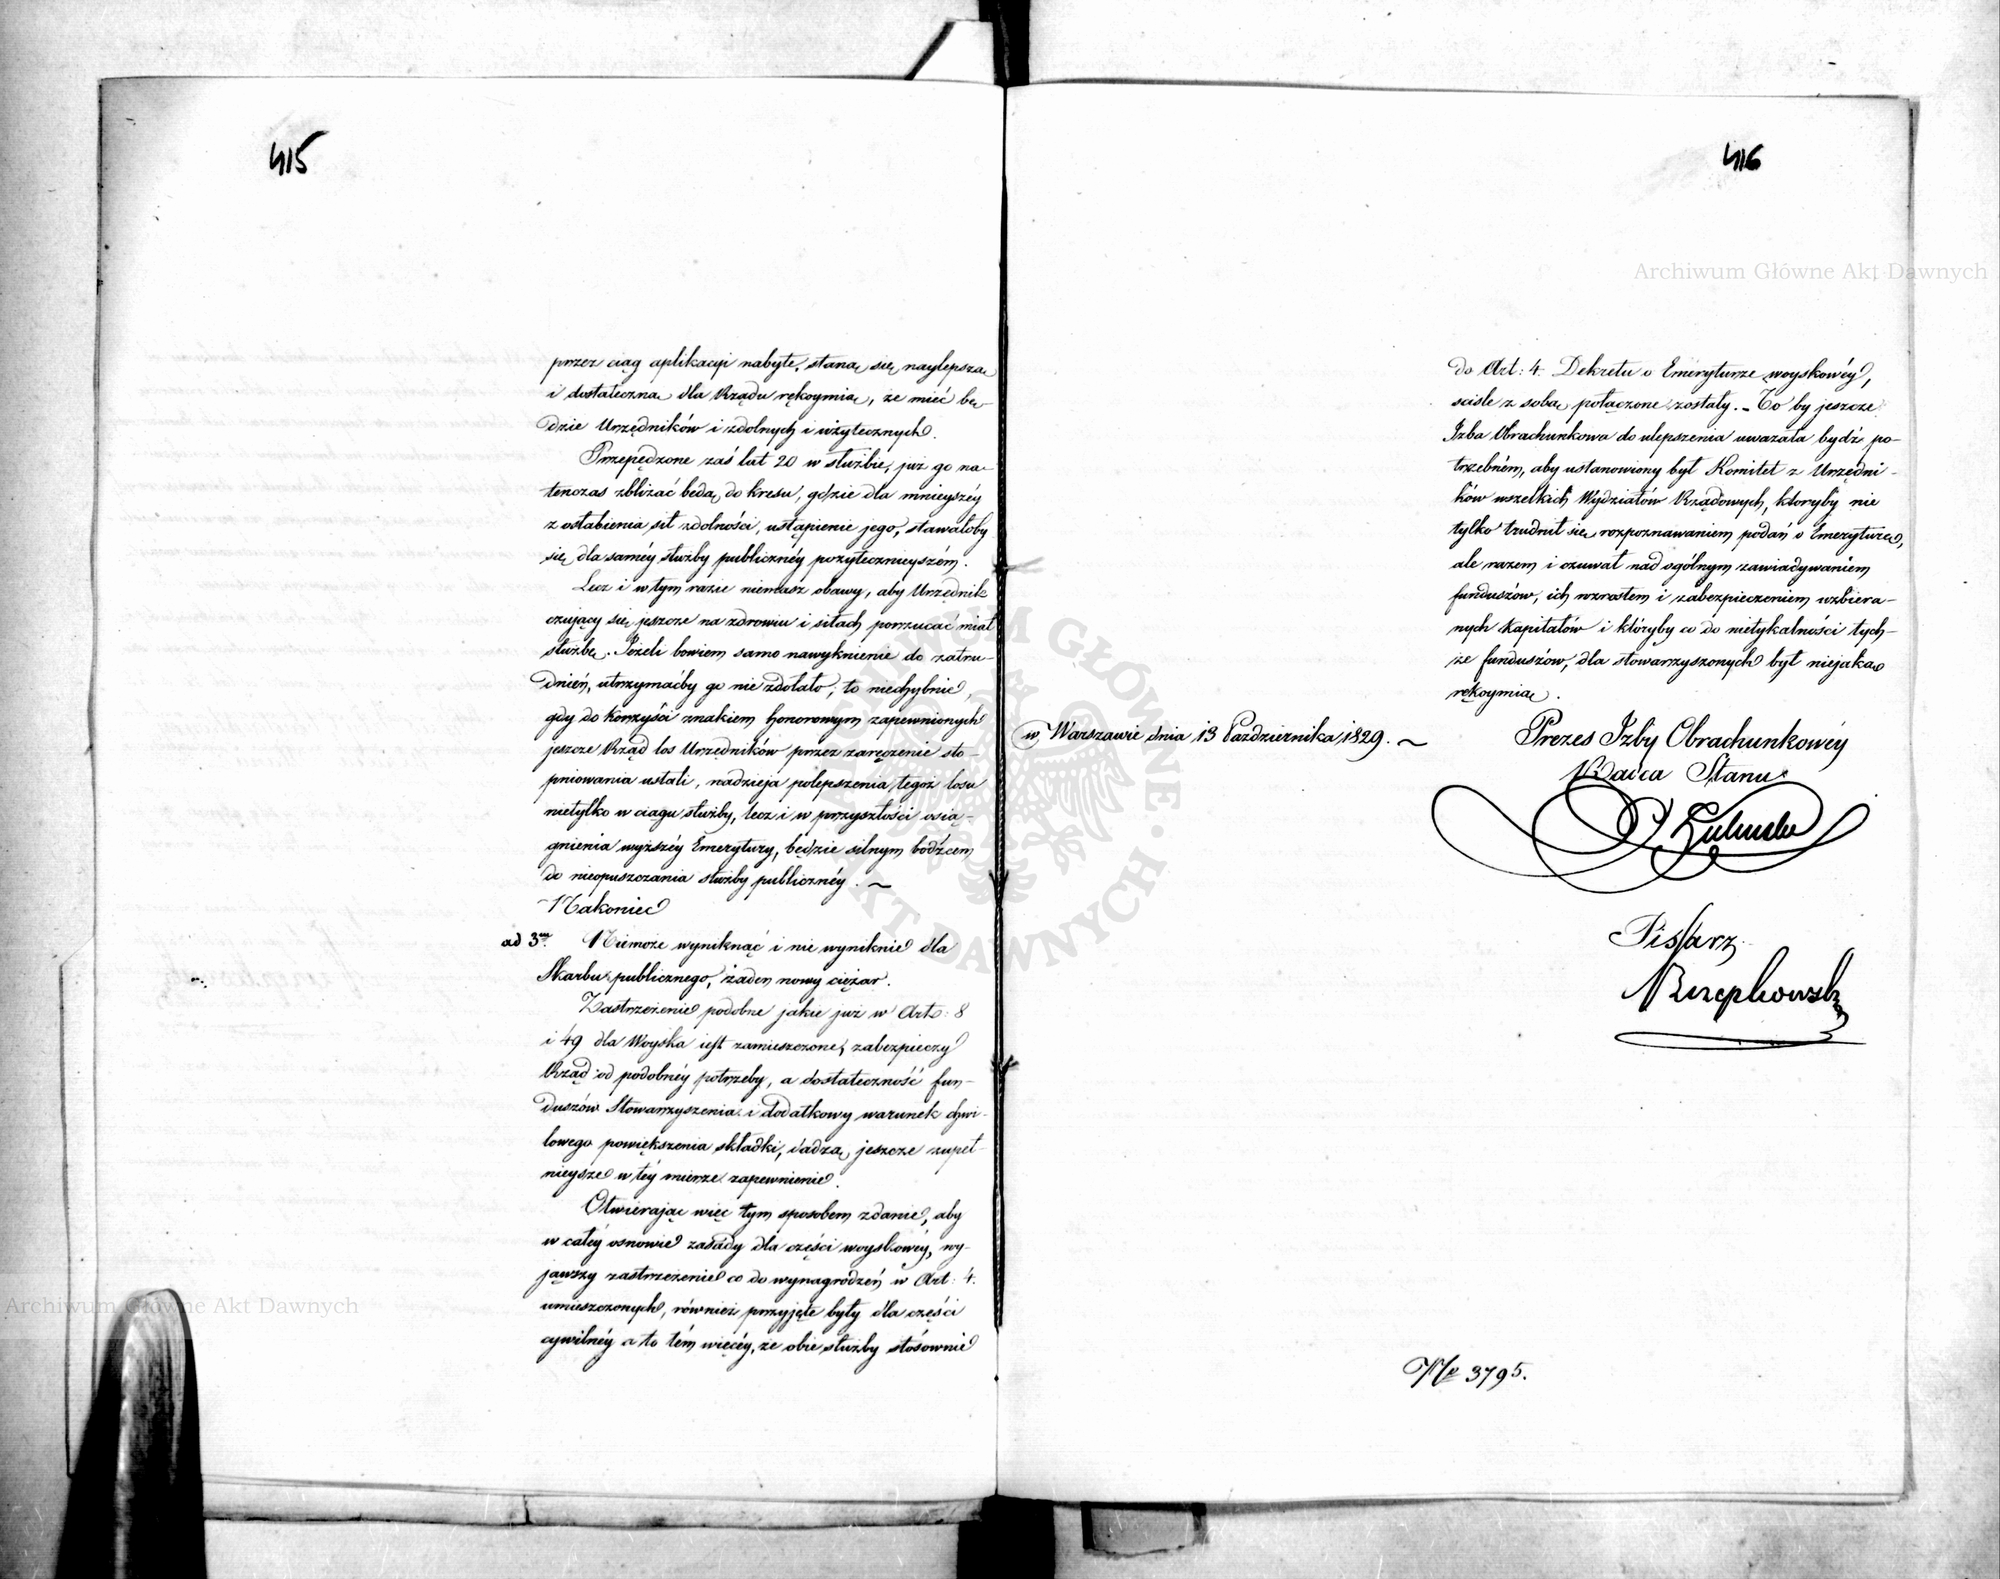 415
przez ciąg aplikacyi nabyte, staną się naylepszą
i dostateczną dla Rządu rękoymią, że mieć bę-
dzie Urzędników i zdolnych i użytecznych.
Przepędzone zaś lat 20 w służbie, już go na-
tenczas zbliżać będą do kresu, gdzie dla mnieyszéy
z osłabienia sił zdolności, ustąpienie jego, stawałoby
się dla saméy służby publicznéy pożytecznieyszém.
Lecz i w tym razie niemasz obawy, aby Urzędnik
czujący się jeszcze na zdrowiu i siłach porzucać miał
służbę. Jeżeli bowiem samo nawyknienie do zatru-
dnień, utrzymaćby go nie zdołało; to niechybnie,
gdy do korzyści znakiem honorowym zapewnionych
jeszcze Rząd los Urzędników przez zaręczenie sto-
pniowania ustali, nadzieja polepszenia tegoż losu
nietylko w ciągu służby, lecz i w przyszłości osią-
gnienia wyższéy Emerytury, będzie silnym bodźcem
do nieopuszczania służby publicznéy. ~
Nakoniec
ad 3um. Niemoże wyniknąć i nie wyniknie dla
Skarbu publicznego, żaden nowy ciężar.
Zastrzeżenie podobne jakie już w Art: 8
i 49 dla Woyska iest zamieszczone, zabezpieczy
Rząd od podobnéy potrzeby, a dostateczność fun-
duszów Stowarzyszenia i dodatkowy warunek chwi-
lowego powiększenia składki, dadzą jeszcze zupeł-
nieysze w téy mierze zapewnienie.
Otwierając więc tym sposobem zdanie, aby
w całéy osnowie zasady dla części woyskowéy, wy-
jąwszy zastrzeżenie co do wynagrodzeń w Art: 4.
umieszczonych, również przyjęte były dla części
cywilnéy a to tém więcéy, że obie służby stósownie
416
do Art: 4. Dekretu o Emeryturze woyskowéy,
ściśle z sobą połączone zostały. – Co by jeszcze
Izba Obrachunkowa do ulepszenia uważała bydź po-
trzebném, aby ustanowiony był Komitet z Urzędni-
ków wszelkich Wydziałów Rządowych, któryby nie
tylko trudnił się rozpoznawaniem podań o Emeryturę,
ale razem i czuwał nad ogólnym zawiadywaniem
funduszów, ich wzrostem i zabezpieczeniem uzbiera-
nych Kapitałów i któryby co do nietykalności tych-
że funduszów, dla stowarzyszonych był niejaką
rękoymią.
w Warszawie dnia 13 Października 1829. ~
Prezes Izby Obrachunkowéy
Radca Stanu
Pisarz
Rzępkowski
No 3795.
Archiwum Główne Akt Dawnych
Archiwum Główne Akt Dawnych